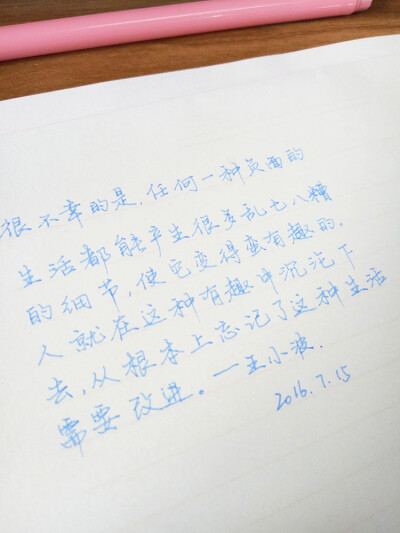 很不幸的是,任何一种负面的
生活都能产生很多乱七八糟
的细节,使它变得蛮有趣的.
人就在这种有趣中沉沦下
去,从根本上忘记了这种生活
需要改进。—王小波.
2016.7.15